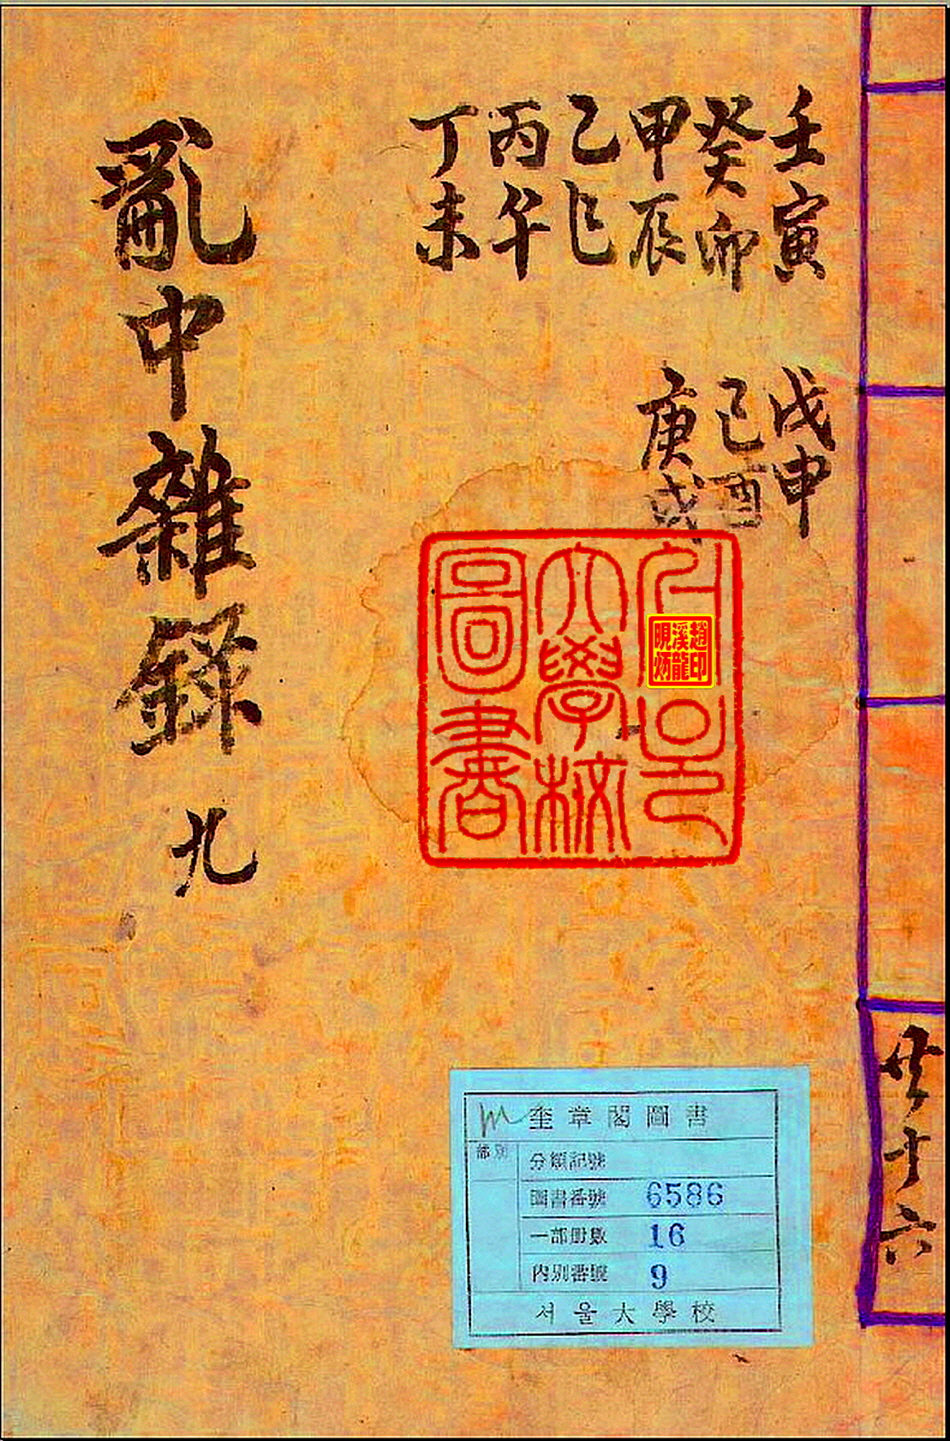 共十六
壬寅
癸卯
甲辰
乙巳
丙午
丁未
戊申
己酉
庚戌
亂中雜錄 九
서울
大學校
圖書
趙印
溪龍
奎章閣圖書
部別
分類記號
圖書番號 6586
一部冊數 16
內別番號 9
서울大學校